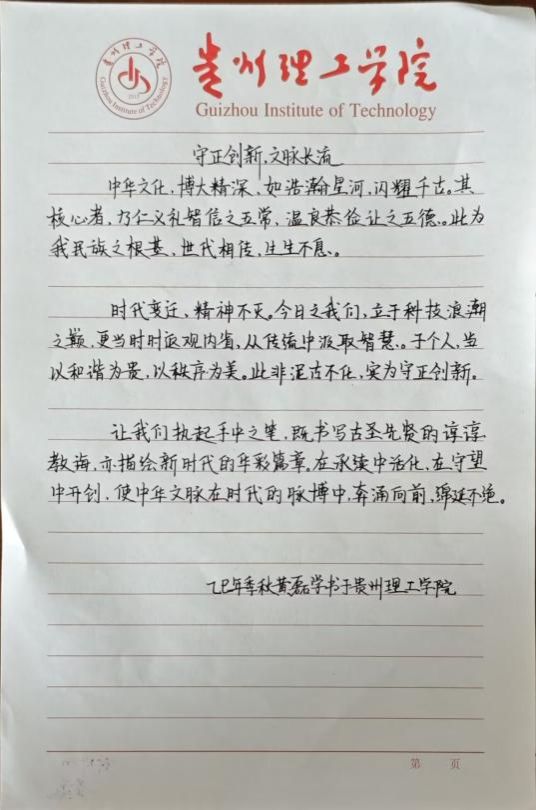 贵州理工学院
Guizhou Institute of Technology
贵州理工学院
2013
Guizhou Institute of Technology
守正创新，文脉长流
中华文化，博大精深、如浩瀚星河，闪耀千古。其
核心者，乃仁义礼智信之五常、温良恭俭让之五德。此为
我民族之根基、世代相传，生生不息。
时代变迁、精神不灭。今日之我们，立于科技浪潮
之巅，更当时时返观内省，从传统中汲取智慧。于个人，当
以和谐为贵，以秩序为美。此非泥古不化，实为守正创新。
让我们执起手中之笔，既书写古圣先贤的谆谆
教诲，亦描绘新时代的华彩篇章。在承续中活化，在守望
中开创，使中华文脉在时代的脉搏中，奔涌向前，绵延不绝。
乙巳年季秋黄磊学书于贵州理工学院
第 页